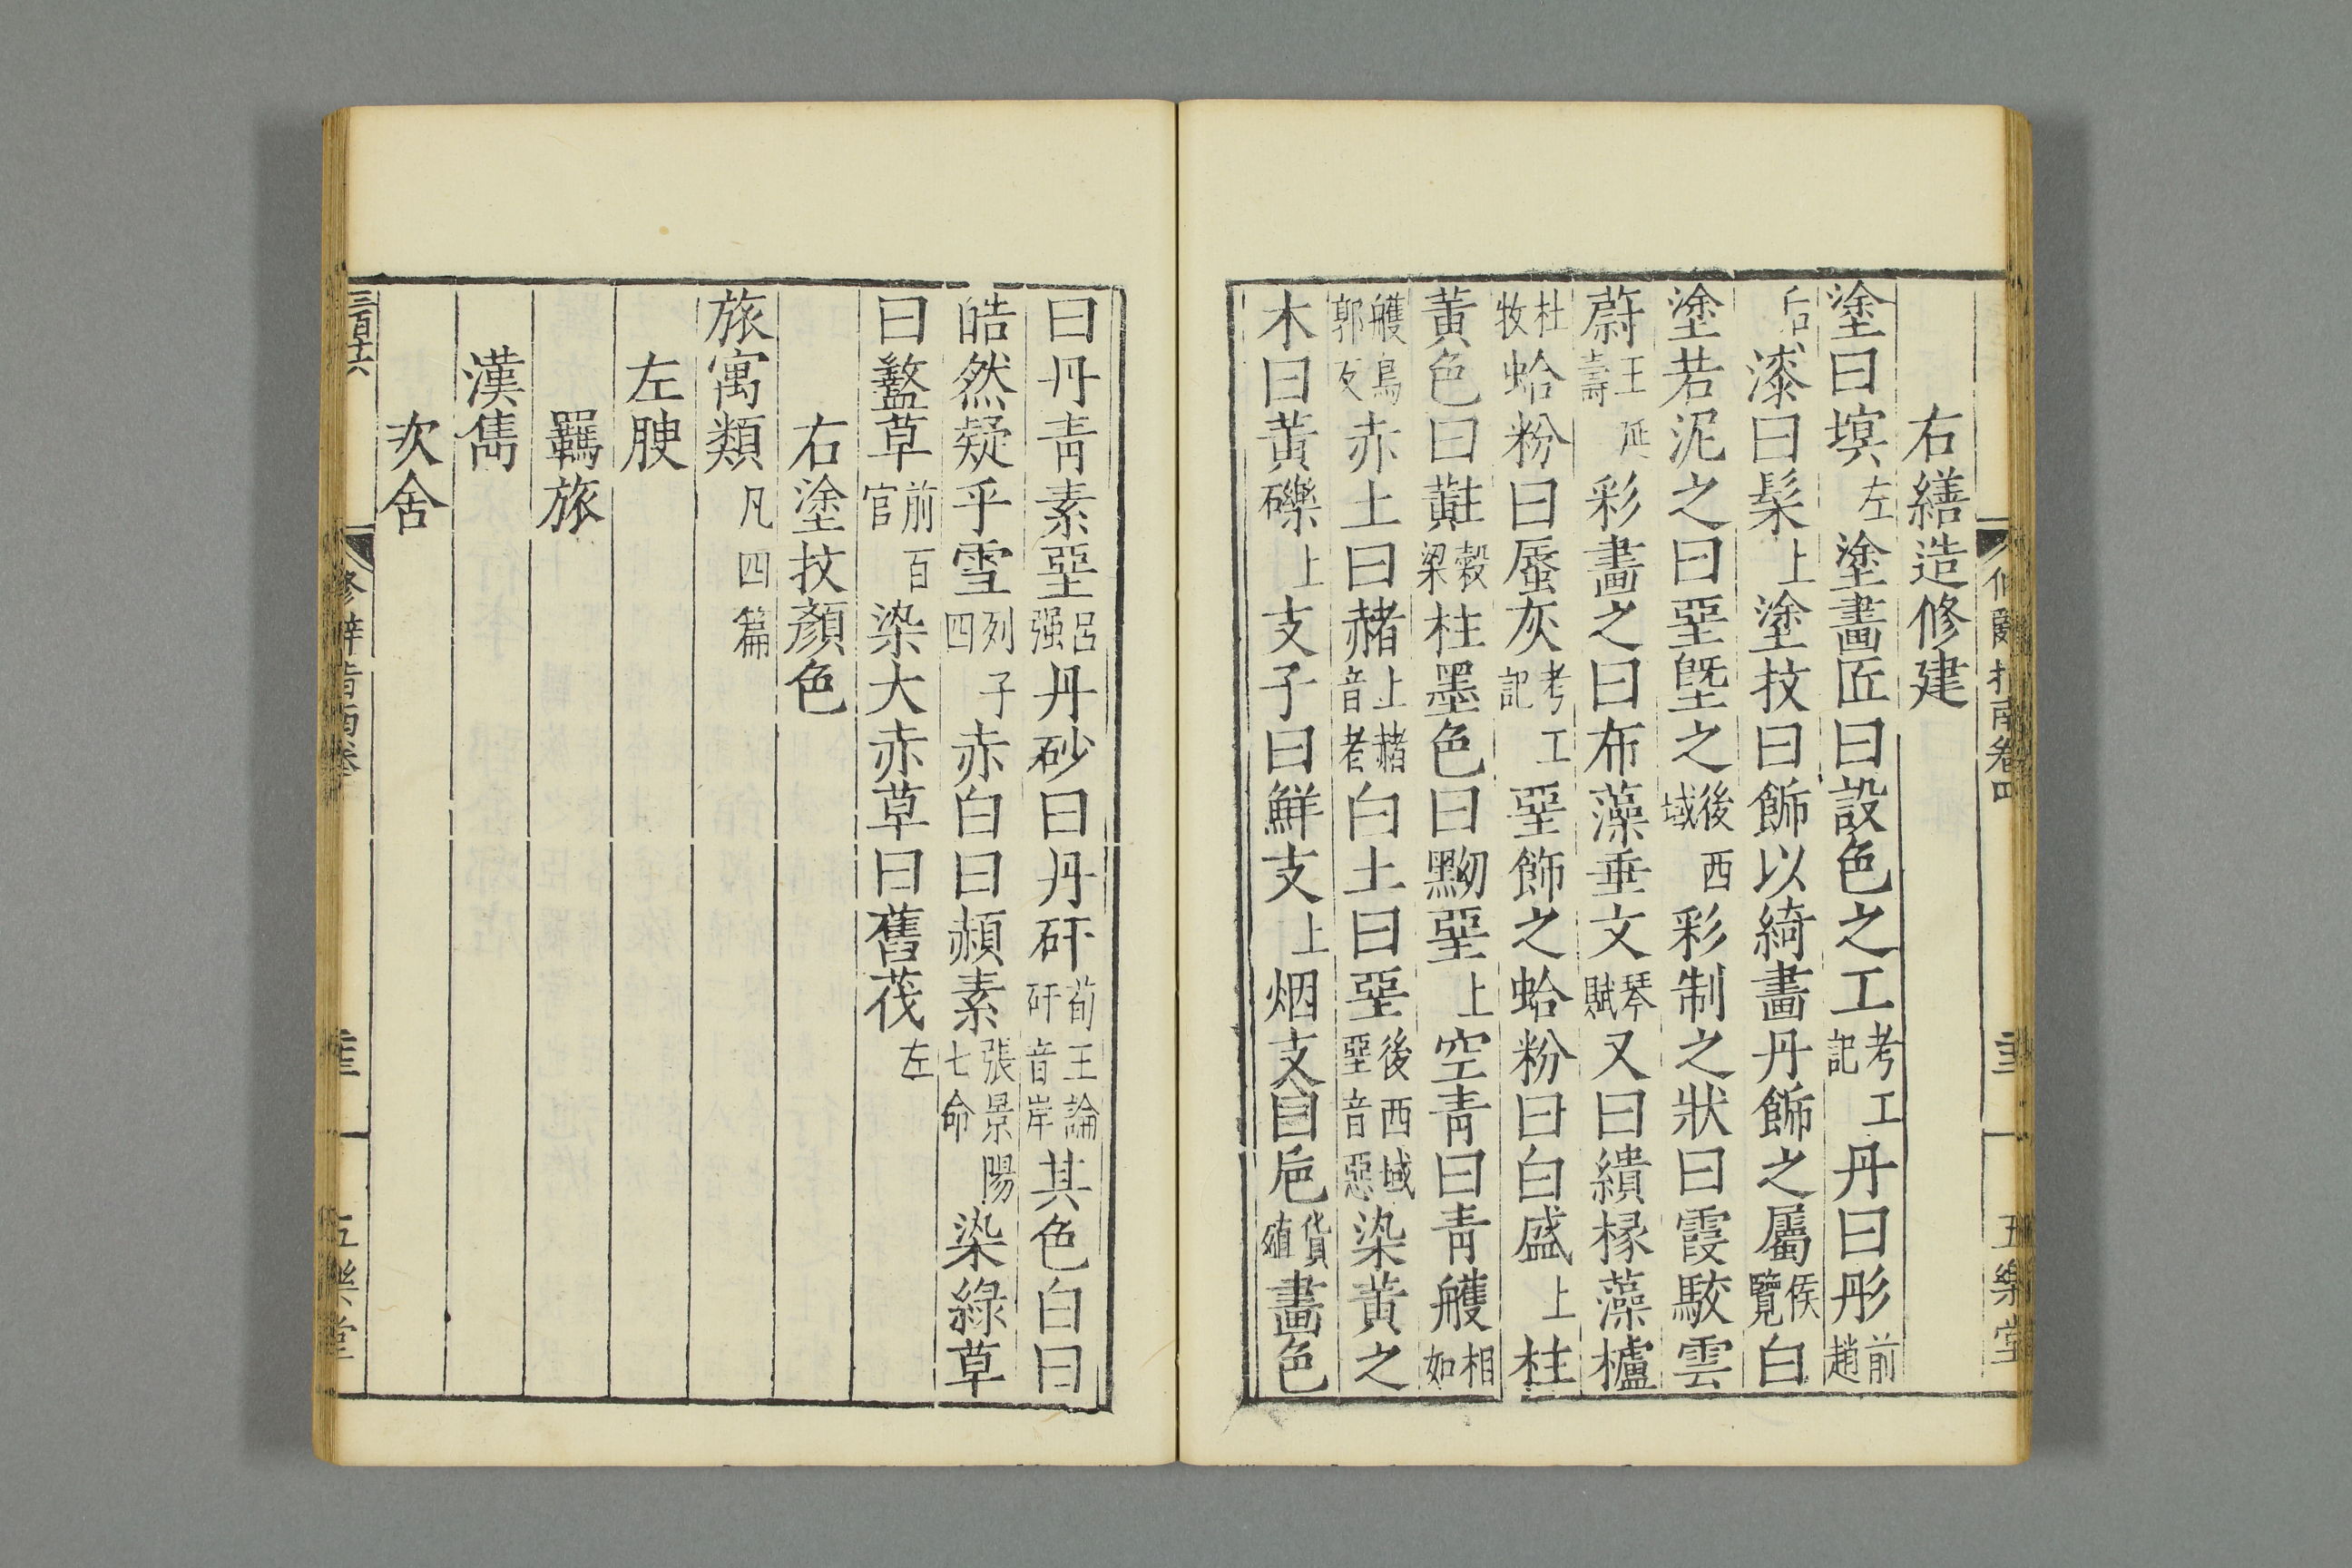 右繕造修建
塗曰塓左塗畫匠曰設色之工考工記丹曰彤前趙
后漆曰髹上塗技曰飾以綺畫丹飾之屬侯覽白
塗若泥之曰堊塈之後西域彩制之狀曰霞駮雲
蔚王延壽彩畫之曰布藻垂文琴賦又曰繢椽藻櫨
杜牧蛤粉曰蜃灰考工記堊飾之蛤粉曰白盛上柱
黃色曰黈穀梁柱墨色曰黝堊上空靑曰靑雘相如
雘烏郭友赤土曰赭上赭音者白土曰堊後西域堊音惡染黃之
木曰黃礫上支子曰鮮支上烟支曰巵貨殖畫色
曰丹靑素堊呂强丹砂曰丹矸荀王論矸音岸其色白曰
皓然疑乎雪列子四赤白曰頳素張景陽七命染綠草
曰盭草前百官染大赤草曰舊茷左
右塗技顏色
旅寓類凡四篇
左腴
羈旅
漢雋
次舍
修辭指南卷四
五樂堂
三百十六
修辭指南卷
五樂堂